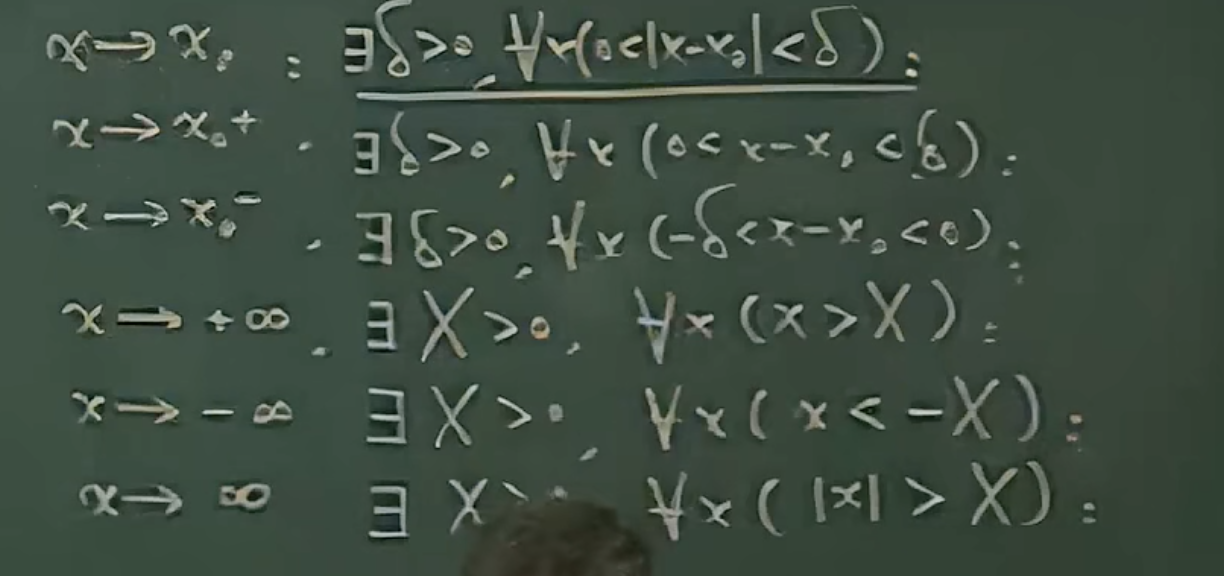 x → x₀ : ∃δ>0, ∀x(0<|x-x₀|<δ):
x → x₀+ . ∃δ>0, ∀x (0< x-x₀ <δ):
x → x₀- . ∃δ>0, ∀x (-δ<x-x₀<0):
x → +∞ . ∃X>0, ∀x (x>X):
x → -∞ ∃X>0, ∀x( x< -X):
x → ∞ ∃X> ∀x( |x| > X):